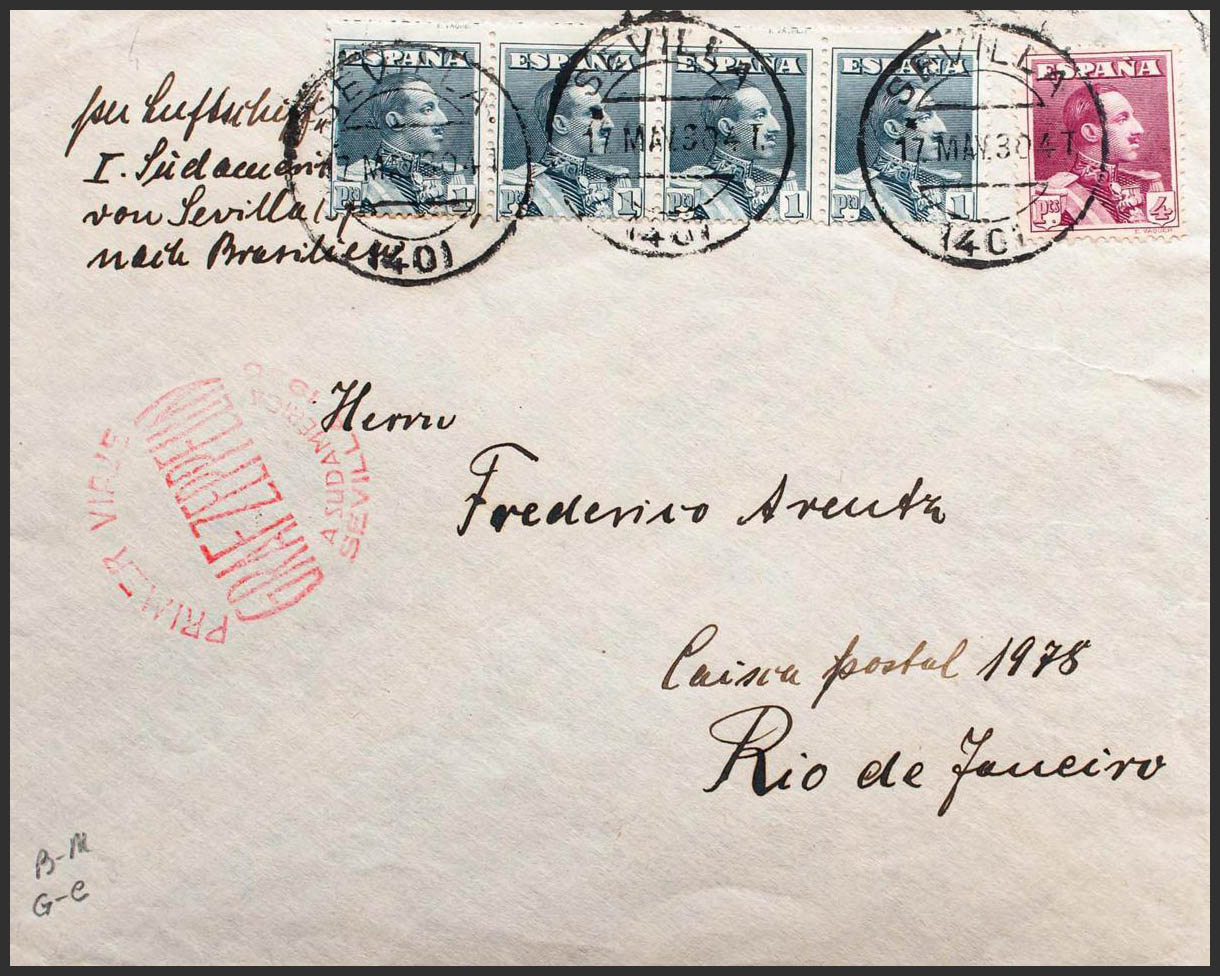 E. VAQUER
ESPAÑA ESPAÑA ESPAÑA ESPAÑA ESPAÑA
Pta 1 Pta 1 Pta 1 Pta 1 Pts 4
E. VAQUER
SEVILLA
17 MAY.30.4T
1401
SEVILLA
17 MAY.30.4T.
1401
SEVILLA
17 MAY.30.4T
1401
per Luftschiff
I. Südameri
von Sevilla
nach Brasilien
PRIMER VIAJE
GRAF ZEPPELIN
A SUDAMERICA
SEVILLA 1930
Herrn
Frederico Arentz
Caixa postal 1978
Rio de Janeiro
B-M
G-C